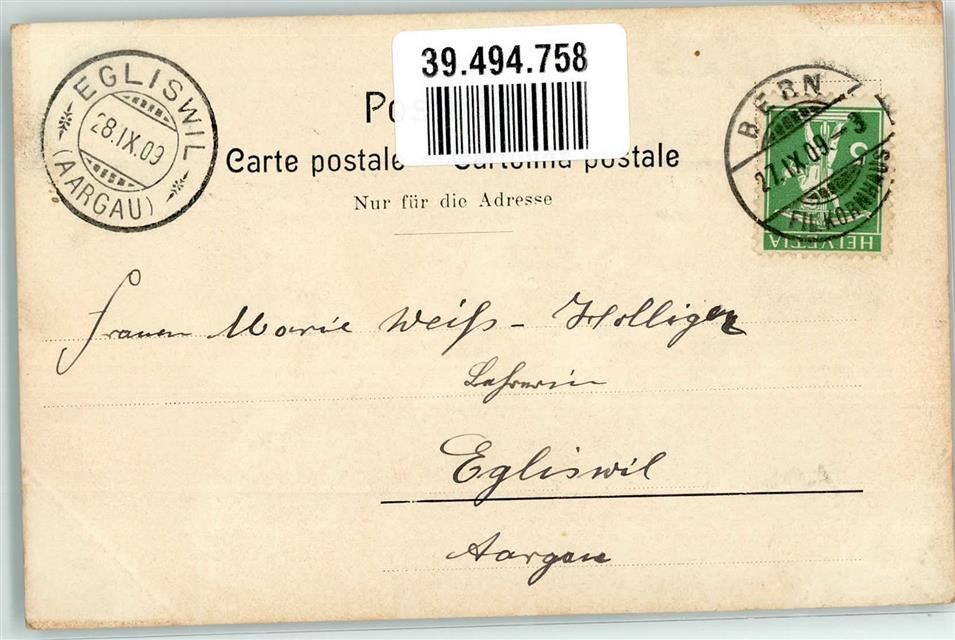 39.494.758
EGLISWIL
28.IX.09
(AARGAU)
BERN
27.IX.09. - 3
FIL. KORNHAUS
5
HELVETIA
Carte postale Cartolina postale
Nur für die Adresse
Frauen Marie Weiß - Holliger
Lehrerin
Egliswil
Aargau